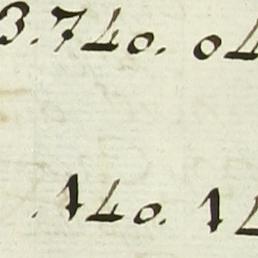 3.740. 04
140. 14